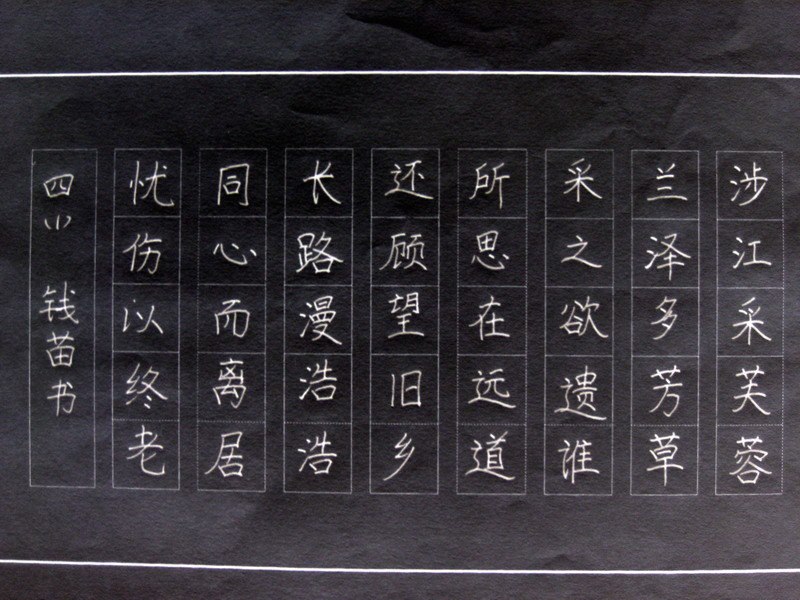 涉江采芙蓉
兰泽多芳草
采之欲遗谁
所思在远道
还顾望旧乡
长路漫浩浩
同心而离居
忧伤以终老
四小 钱苗书